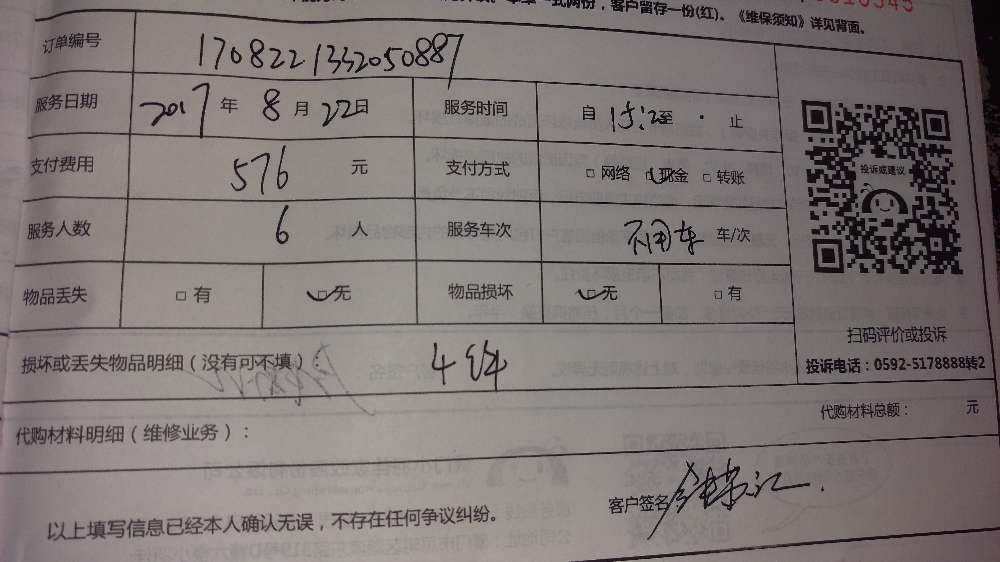 式两份，客户留存一份(红)。《维保须知》详见背面。
订单编号 1708221332050887
服务日期 2017年8月22日 服务时间 自15:2至 · 止
支付费用 576 元 支付方式 □网络 □现金 □转账
服务人数 6 人 服务车次 不用车 车/次
投诉或建议
物品丢失 □有 □无 物品损坏 □无 □有
扫码评价或投诉
投诉电话：0592-5178888转2
损坏或丢失物品明细（没有可不填）：
代购材料总额： 元
代购材料明细（维修业务）：
客户签名
以上填写信息已经本人确认无误，不存在任何争议纠纷。